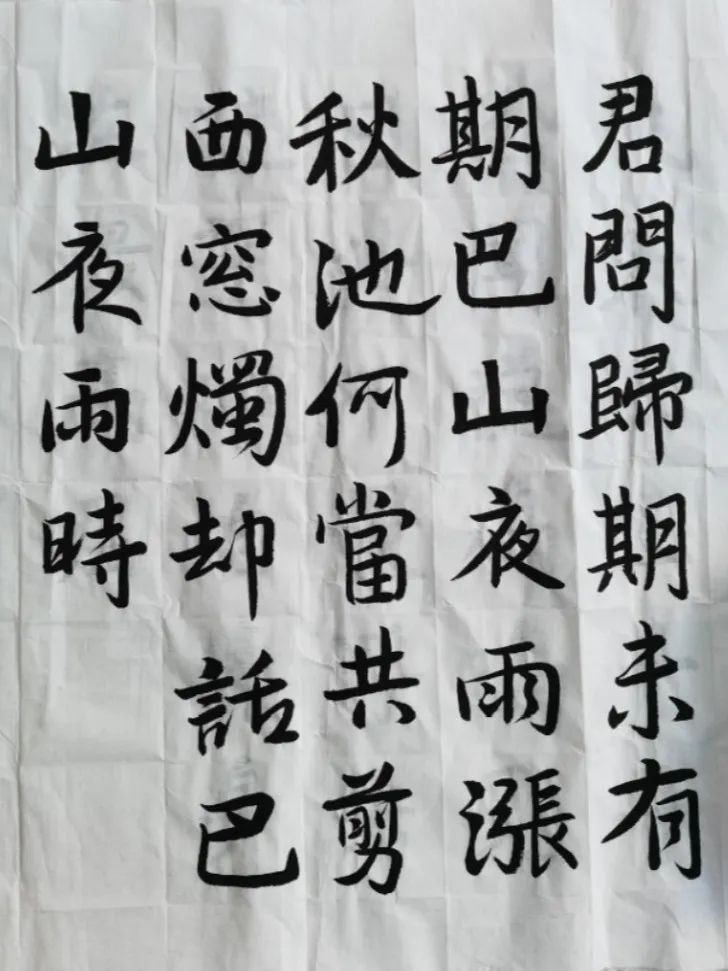 君問歸期未有
期巴山夜雨漲
秋池何當共剪
西窓燭却話巴
山夜雨時